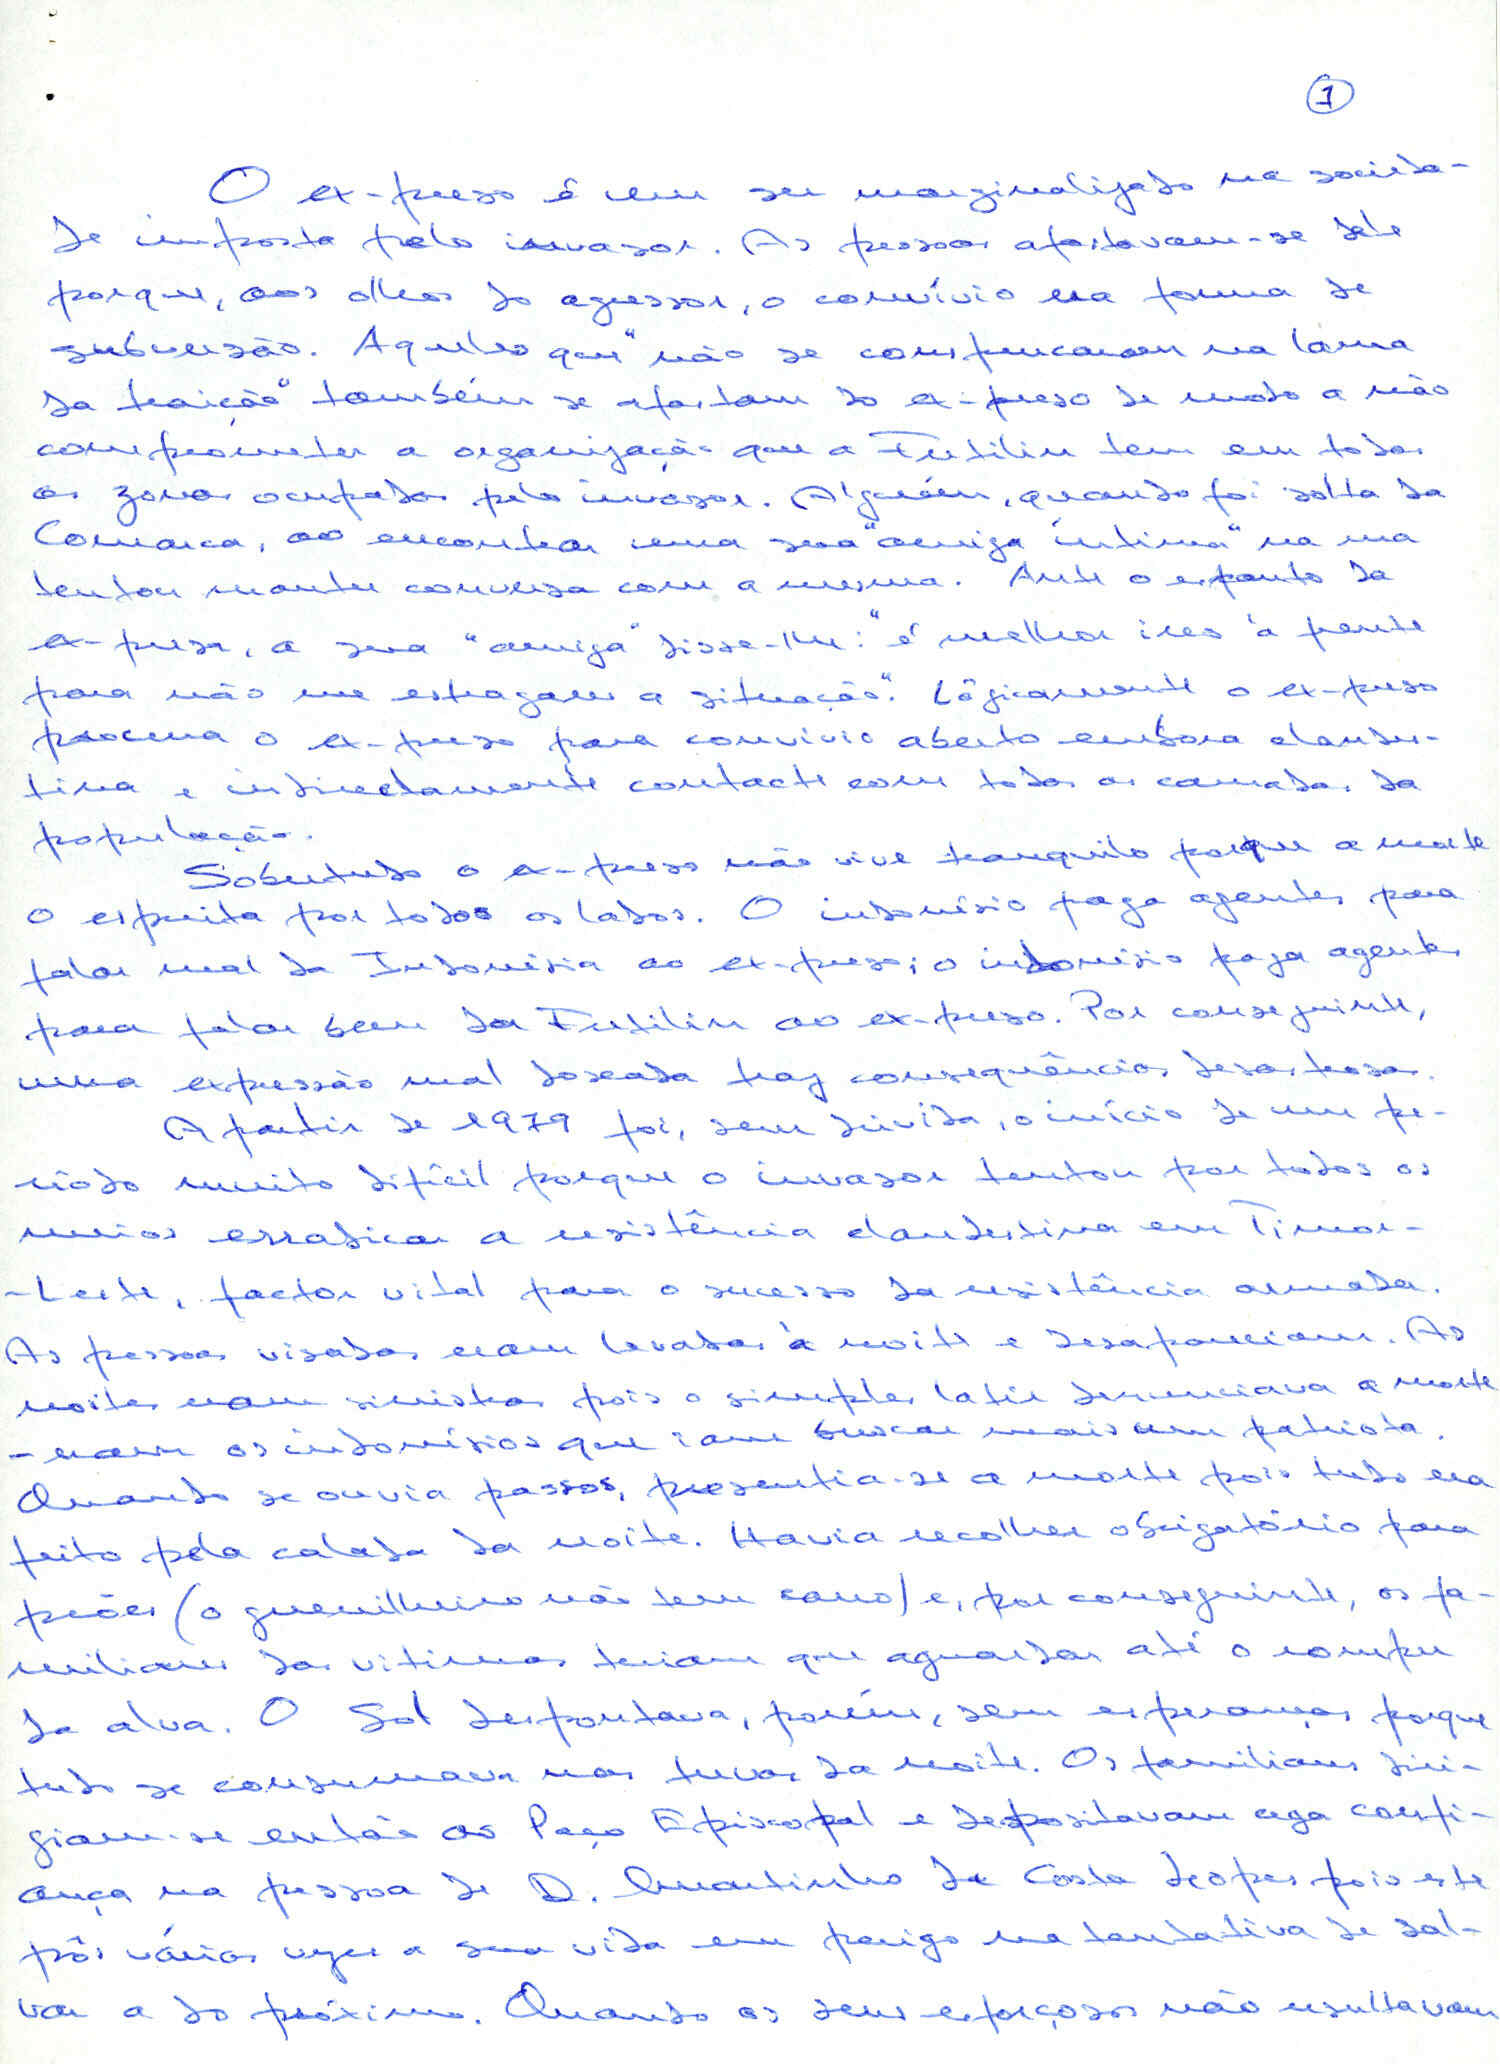 1
O ex-preso é um ser marginalizado na socieda-
de imposta pelo invasor. As pessoas afastavam-se dele
porque, aos olhos do agressor, o convívio era forma de
subversão. Aqueles que "não se conspurcaram na lama
da traição" também se afastam do ex-preso de modo a não
comprometer a organização que a Fretilin tem em todas
as zonas ocupadas pelo invasor. Alguém, quando foi solta da
Comarca, ao encontrar uma sua "amiga íntima" na rua
tentou manter conversa com a mesma. Ante o espanto da
ex-presa, a sua "amiga" disse-lhe: "é melhor ires à frente
para não me estragares a situação". Lògicamente o ex-preso
procura o ex-preso para convívio aberto embora clandes-
tina e indirectamente contacte com todas as camadas da
população.
Sobretudo o ex-preso não vive tranquilo porque a morte
o espreita por todos os lados. O indonésio paga agentes para
falar mal da Indonésia ao ex-preso; o indonésio paga agentes
para falar bem da Fretilin ao ex-preso. Por conseguinte,
uma expressão mal doseada traz consequências desastrosas.
A partir de 1979 foi, sem dúvida, o início de um pe-
ríodo muito difícil porque o invasor tentou por todos os
meios erradicar a resistência clandestina em Timor-
-Leste, factor vital para o sucesso da resistência armada.
As pessoas visadas eram levadas à noite e desapareciam. As
noites eram sinistras pois o simples latir denunciava a morte
-eram os indonésios que iam buscar mais um patriota.
Quando se ouvia passos, pressentia-se a morte pois tudo era
feito pela calada da noite. Havia recolher obrigatório para
peões (o guerrilheiro não tem carro) e, por conseguinte, os fa-
miliares das vítimas teriam que aguardar até o romper
da alva. O Sol despontava, porém, sem esperanças porque
tudo se consumava nas trevas da noite. Os familiares diri-
giam-se então ao Paço Episcopal e depositavam cega confi-
ança na pessoa de D. Martinho da Costa Lopes pois este
pôs várias vezes a sua vida em perigo na tentativa de sal-
var a do próximo. Quando os seus esforços não resultavam